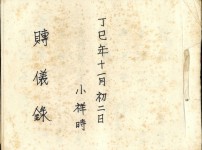 丁巳年十一月初二日
小祥時
賻儀錄